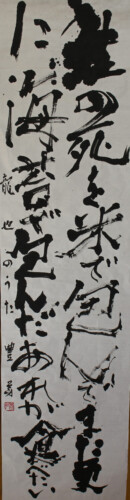 鮭の死を米で包んでまた更
に海苔で包んだあれが食べたい
龍也のうた 豊